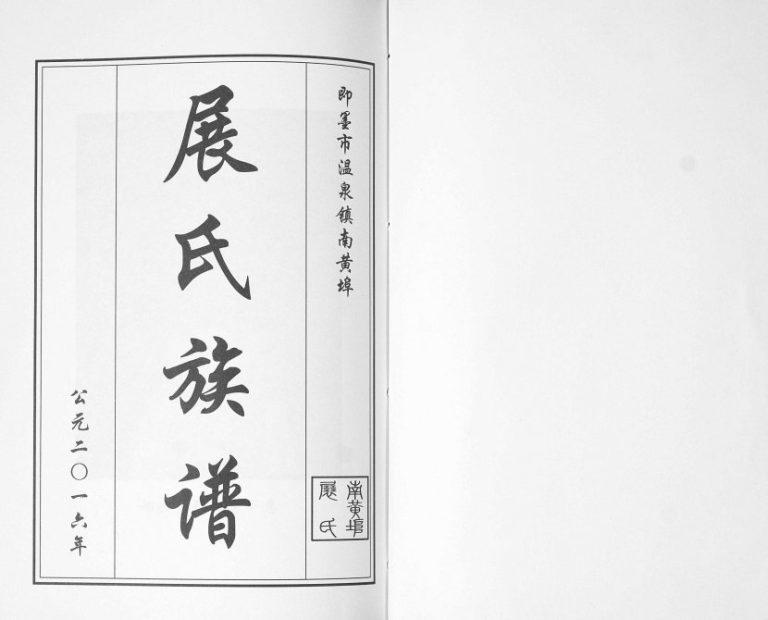 即墨市温泉镇南黄埠
展氏族谱
公元二〇一六年
南黄埠
展氏